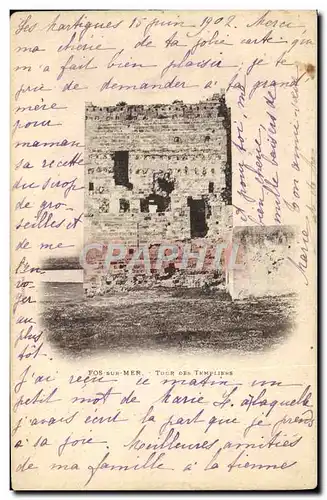 Les Martigues 15 juin 1902. Merci,
ma chérie, de ta jolie carte qui
m'a fait bien plaisir. Je te
prie de demander à ta grand
mère
pour
maman
sa recette
du sirop
de gro-
seilles et
de me
l'en-
voyer
au plus
tôt.
pour toi,
mille baisers de
ton amie
Marie
CPARAMA
FOS-SUR-MER. - TOUR DES TEMPLIERS
J'ai reçu ce matin un
petit mot de Marie L. à laquelle
j'avais écrit la part que je prends
à sa joie. Meilleures amitiés
de ma famille à la tienne